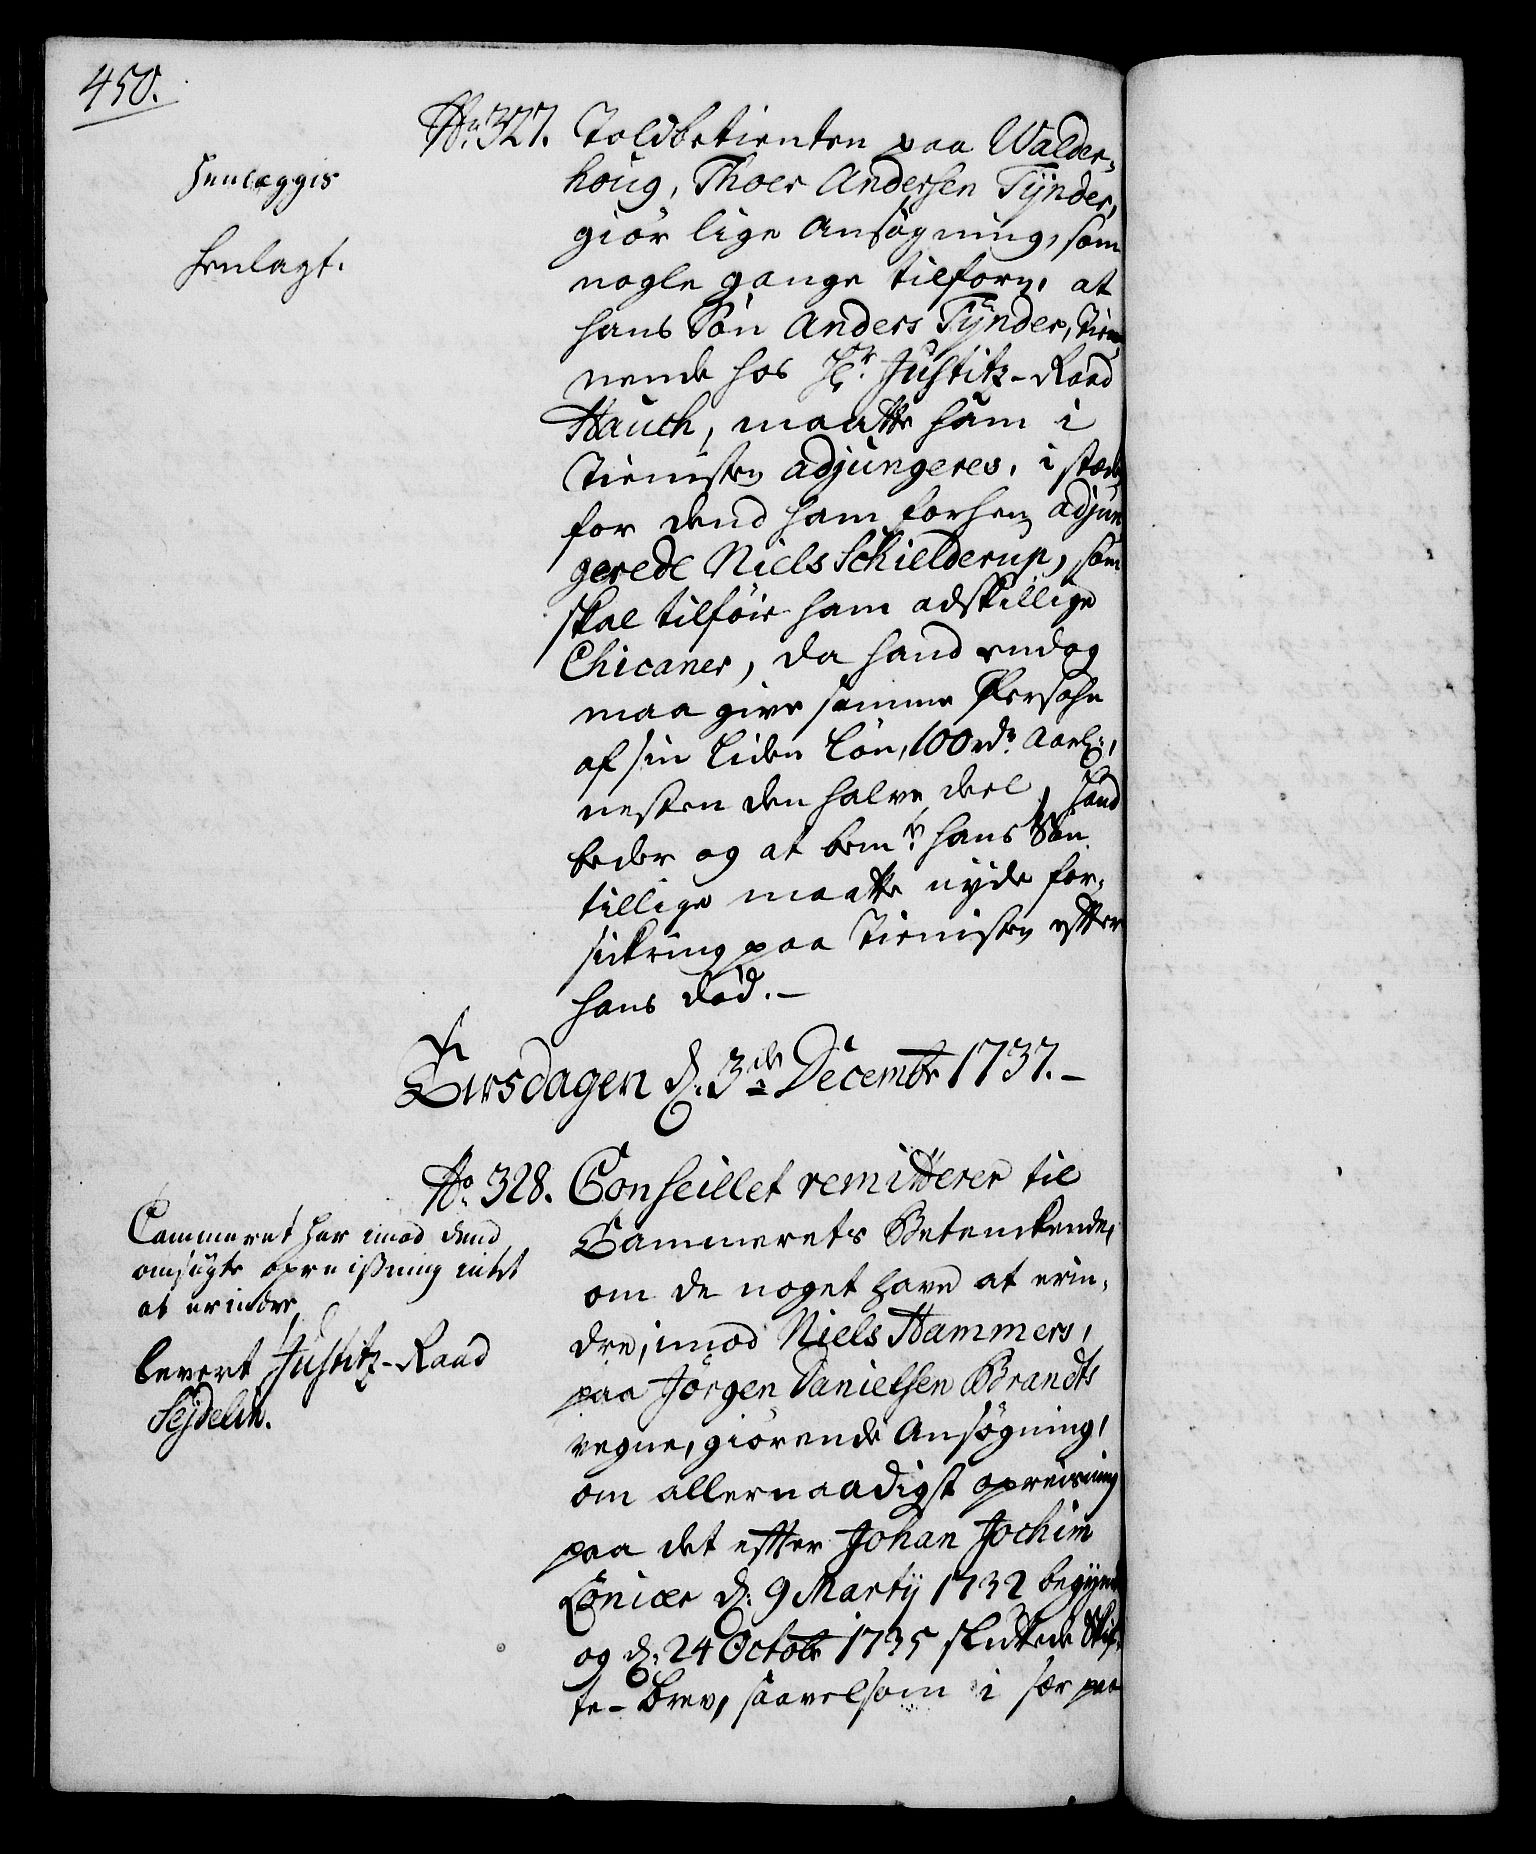 450.
No. 327. Toldbetienten paa Walder-
houg, Thoer Andersen Tÿnder,
giör lige Ansøgning, som
nogle gange tilforn, at
hans Søn Anders Tÿnder, tie-
nende hos Hr. Justitz-Raad
Hauch, maatte ham i
Tienisten adjungeres, i stæden
for dend ham forhen adjun
gerede Niels Schielderup, som
skal tilføie ham adskillige
Chicaner, da hand endog
maa give samme Persohn
af sin liden Løn, 100 rdr. aarl:,
nesten den halve deel, hand
beder og at bemte. hans Søn
tillige maatte nyde for-
sickring paa Tienisten effter
hans død.-
Henlæggis
Henlagt.
Tirsdagen d. 3de Decembr 1737.-
No. 328. Conseillet remitterer til
Cammerets Betenckende,
om de noget have at erin-
dre, imod Niels Hammers,
paa Jörgen Danielsen Brandts
vegne, giørende Ansøgning,
om allernaadigst opreisning
paa det effter Johan Jochim
Löniær d. 9 Martij 1732 begynte
og d. 24 Octobr 1735 sluttede Skif-
te-brev, saavelsom i sær paa
Cammeret har imod dend
ansøgte opreisning intet
at erindre,
levert Justitz-Raad
Sejdelin.